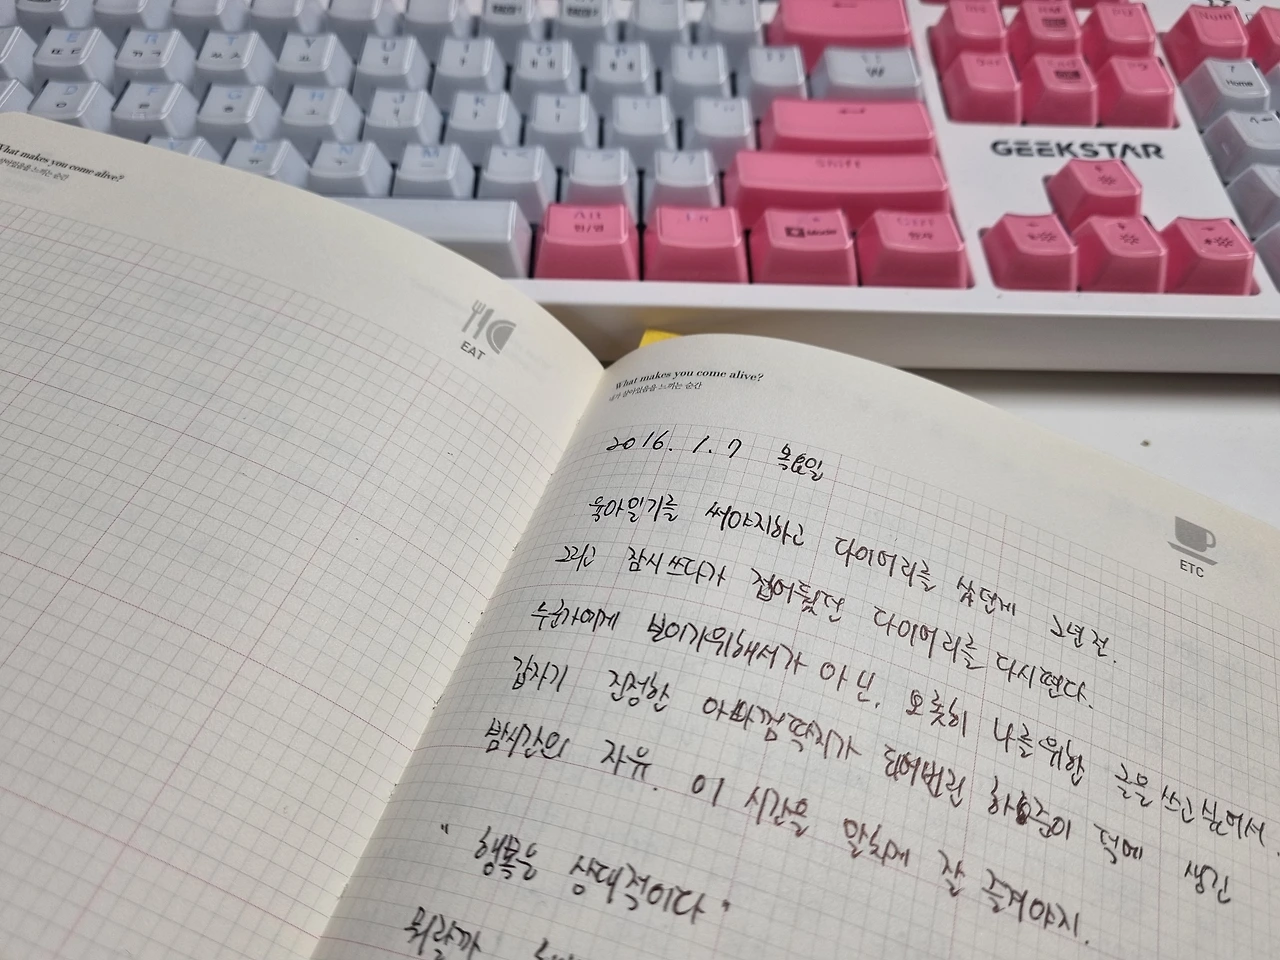 GEEKSTAR
Home
Shift
Alt
한/영
Fn
Mode
Ctrl
한자
What makes you come alive?
살아있음을 느끼는 순간
EAT
What makes you come alive?
내가 살아있음을 느끼는 순간
ETC
2016. 1. 7 목요일
육아일기를 써야지하고 다이어리를 샀던게 2년 전.
그리고 잠시 쓰다가 접어뒀던 다이어리를 다시편다.
누군가에게 보이기위해서가 아닌, 오롯히 나를위한 글을 쓰고싶어서.
갑자기 진정한 아빠껌딱지가 되어버린 하준이 덕에 생긴
밤시간의 자유. 이 시간을 알차게 잘 즐겨야지.
"행복은 상대적이다"
뭐랄까